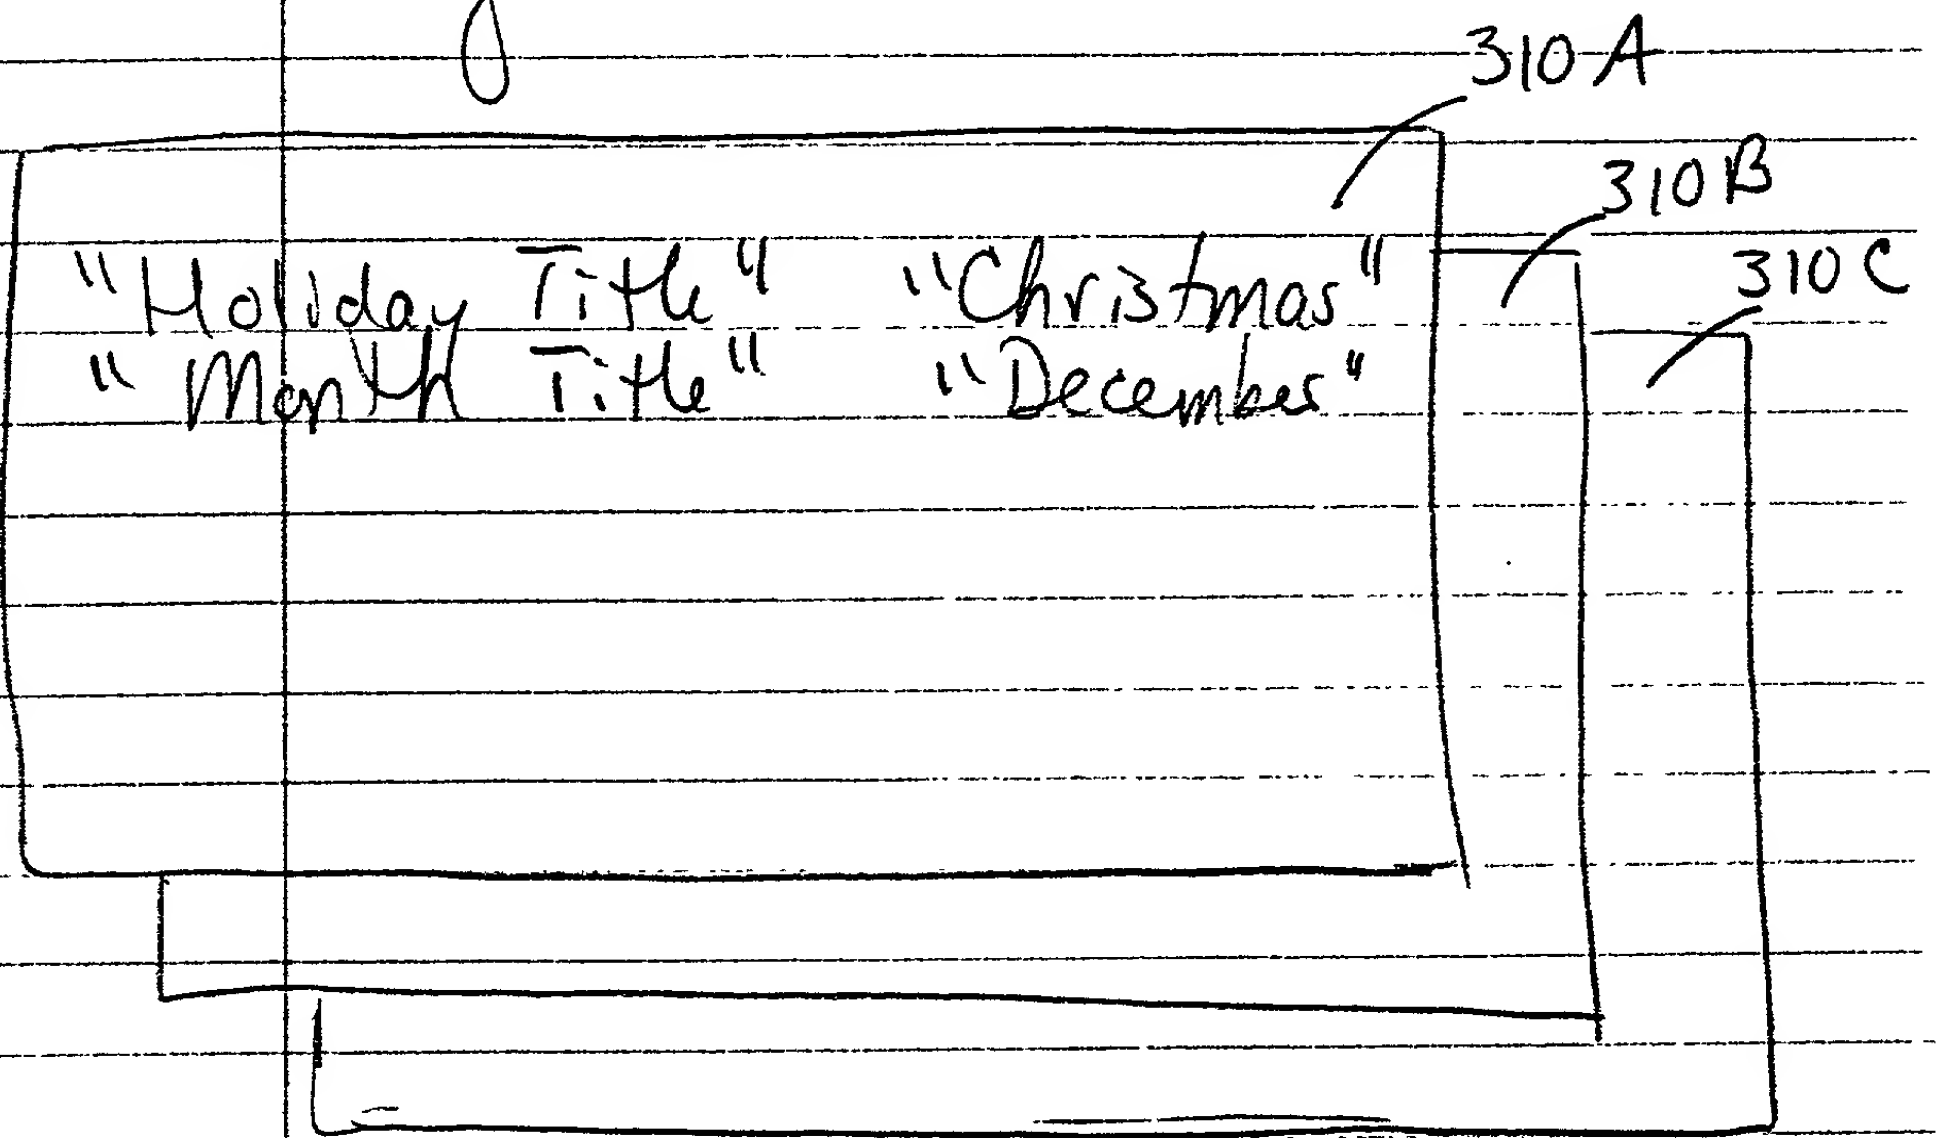 310A
310B
310C
"Holiday Title" "Christmas"
"Month Title" "December"